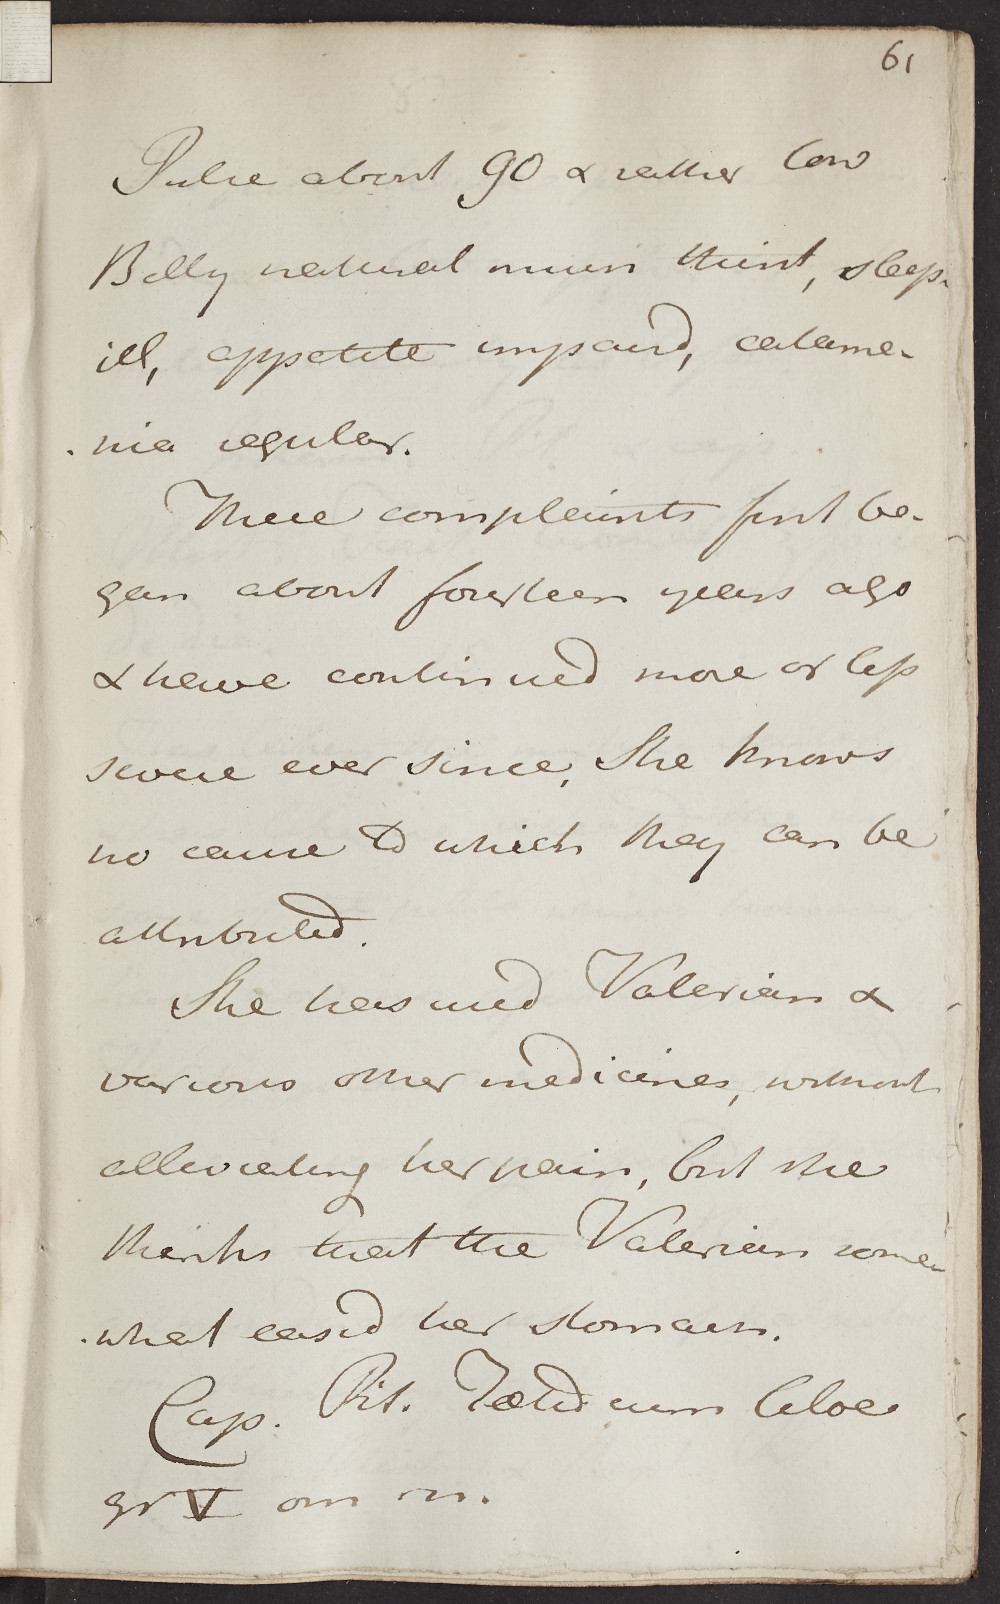 61
Pulse about 90 & rather low
Belly natural much thirst, sleep
ill, appetite impaird, catame-
-nia regular.
These complaints first be-
gan about fourteen years ago
& have continued more or less
severe ever since, She knows
no cause to which they can be
attributed.
She has used Valerian &
various other medicines, without
alleviating her pain, but she
thinks that the Valerian some-
-what eas'd her stomach.
Cap. Pil. Fœtid cum Aloe
gr V om n.